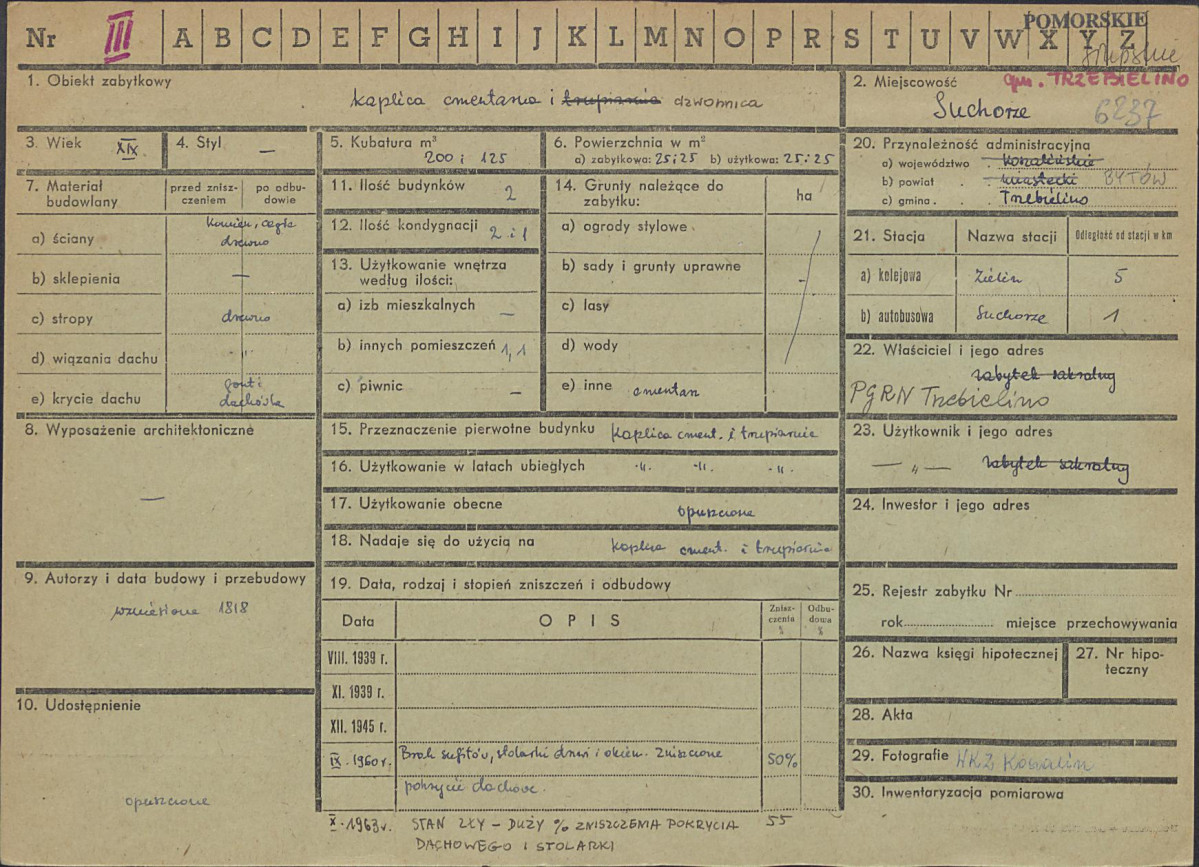 POMORSKIE
Nr III A B C D E F G H I J K L M N O P R S T U V W X Y Z
słupskie
1. Obiekt zabytkowy
kaplica cmentarna i trupiarnia dzwonnica
2. Miejscowość gm. TRZEBIELINO
Suchorze 6237
3. Wiek XIX
4. Styl —
5. Kubatura m³
200 i 125
6. Powierzchnia w m²
a) zabytkowa: 25 i 25 b) użytkowa: 25 i 25
7. Materiał budowlany
przed zniszczeniem
po odbudowie
a) ściany kamień, cegła
drewno
b) sklepienia —
c) stropy drewno
d) wiązania dachu "
e) krycie dachu gont i
dachówka
8. Wyposażenie architektoniczne
—
9. Autorzy i data budowy i przebudowy
wzniesione 1818
10. Udostępnienie
opuszczone
11. Ilość budynków 2
12. Ilość kondygnacji 2 i 1
13. Użytkowanie wnętrza
według ilości:
a) izb mieszkalnych —
b) innych pomieszczeń 1, 1
c) piwnic —
14. Grunty należące do
zabytku:
ha
a) ogrody stylowe
b) sady i grunty uprawne -
c) lasy
d) wody
e) inne cmentarz
15. Przeznaczenie pierwotne budynku kaplica cment. i trupiarnia
16. Użytkowanie w latach ubiegłych -"- -"- -"-
17. Użytkowanie obecne opuszczone
18. Nadaje się do użycia na kaplica cment. i trupiarnia
19. Data, rodzaj i stopień zniszczeń i odbudowy
Data OPIS Zniszczenia % Odbudowa %
VIII. 1939 r.
XI. 1939 r.
XII. 1945 r.
IX. 1960 r. Brak sufitów, stolarki drzwi i okien. Zniszczone 50%
pokrycie dachowe.
X. 1963 r. STAN ZŁY – DUŻY % ZNISZCZENIA POKRYCIA 55
DACHOWEGO I STOLARKI
20. Przynależność administracyjna
a) województwo koszalińskie
b) powiat miastecki BYTÓW
c) gmina Trzebielino
21. Stacja Nazwa stacji Odległość od stacji w km
a) kolejowa Zielin 5
b) autobusowa Suchorze 1
22. Właściciel i jego adres
zabytek sakralny
PGRN Trzebielino
23. Użytkownik i jego adres
— " — zabytek sakralny
24. Inwestor i jego adres
25. Rejestr zabytku Nr
rok miejsce przechowywania
26. Nazwa księgi hipotecznej
27. Nr hipo-
teczny
28. Akta
29. Fotografie WKZ Koszalin
30. Inwentaryzacja pomiarowa